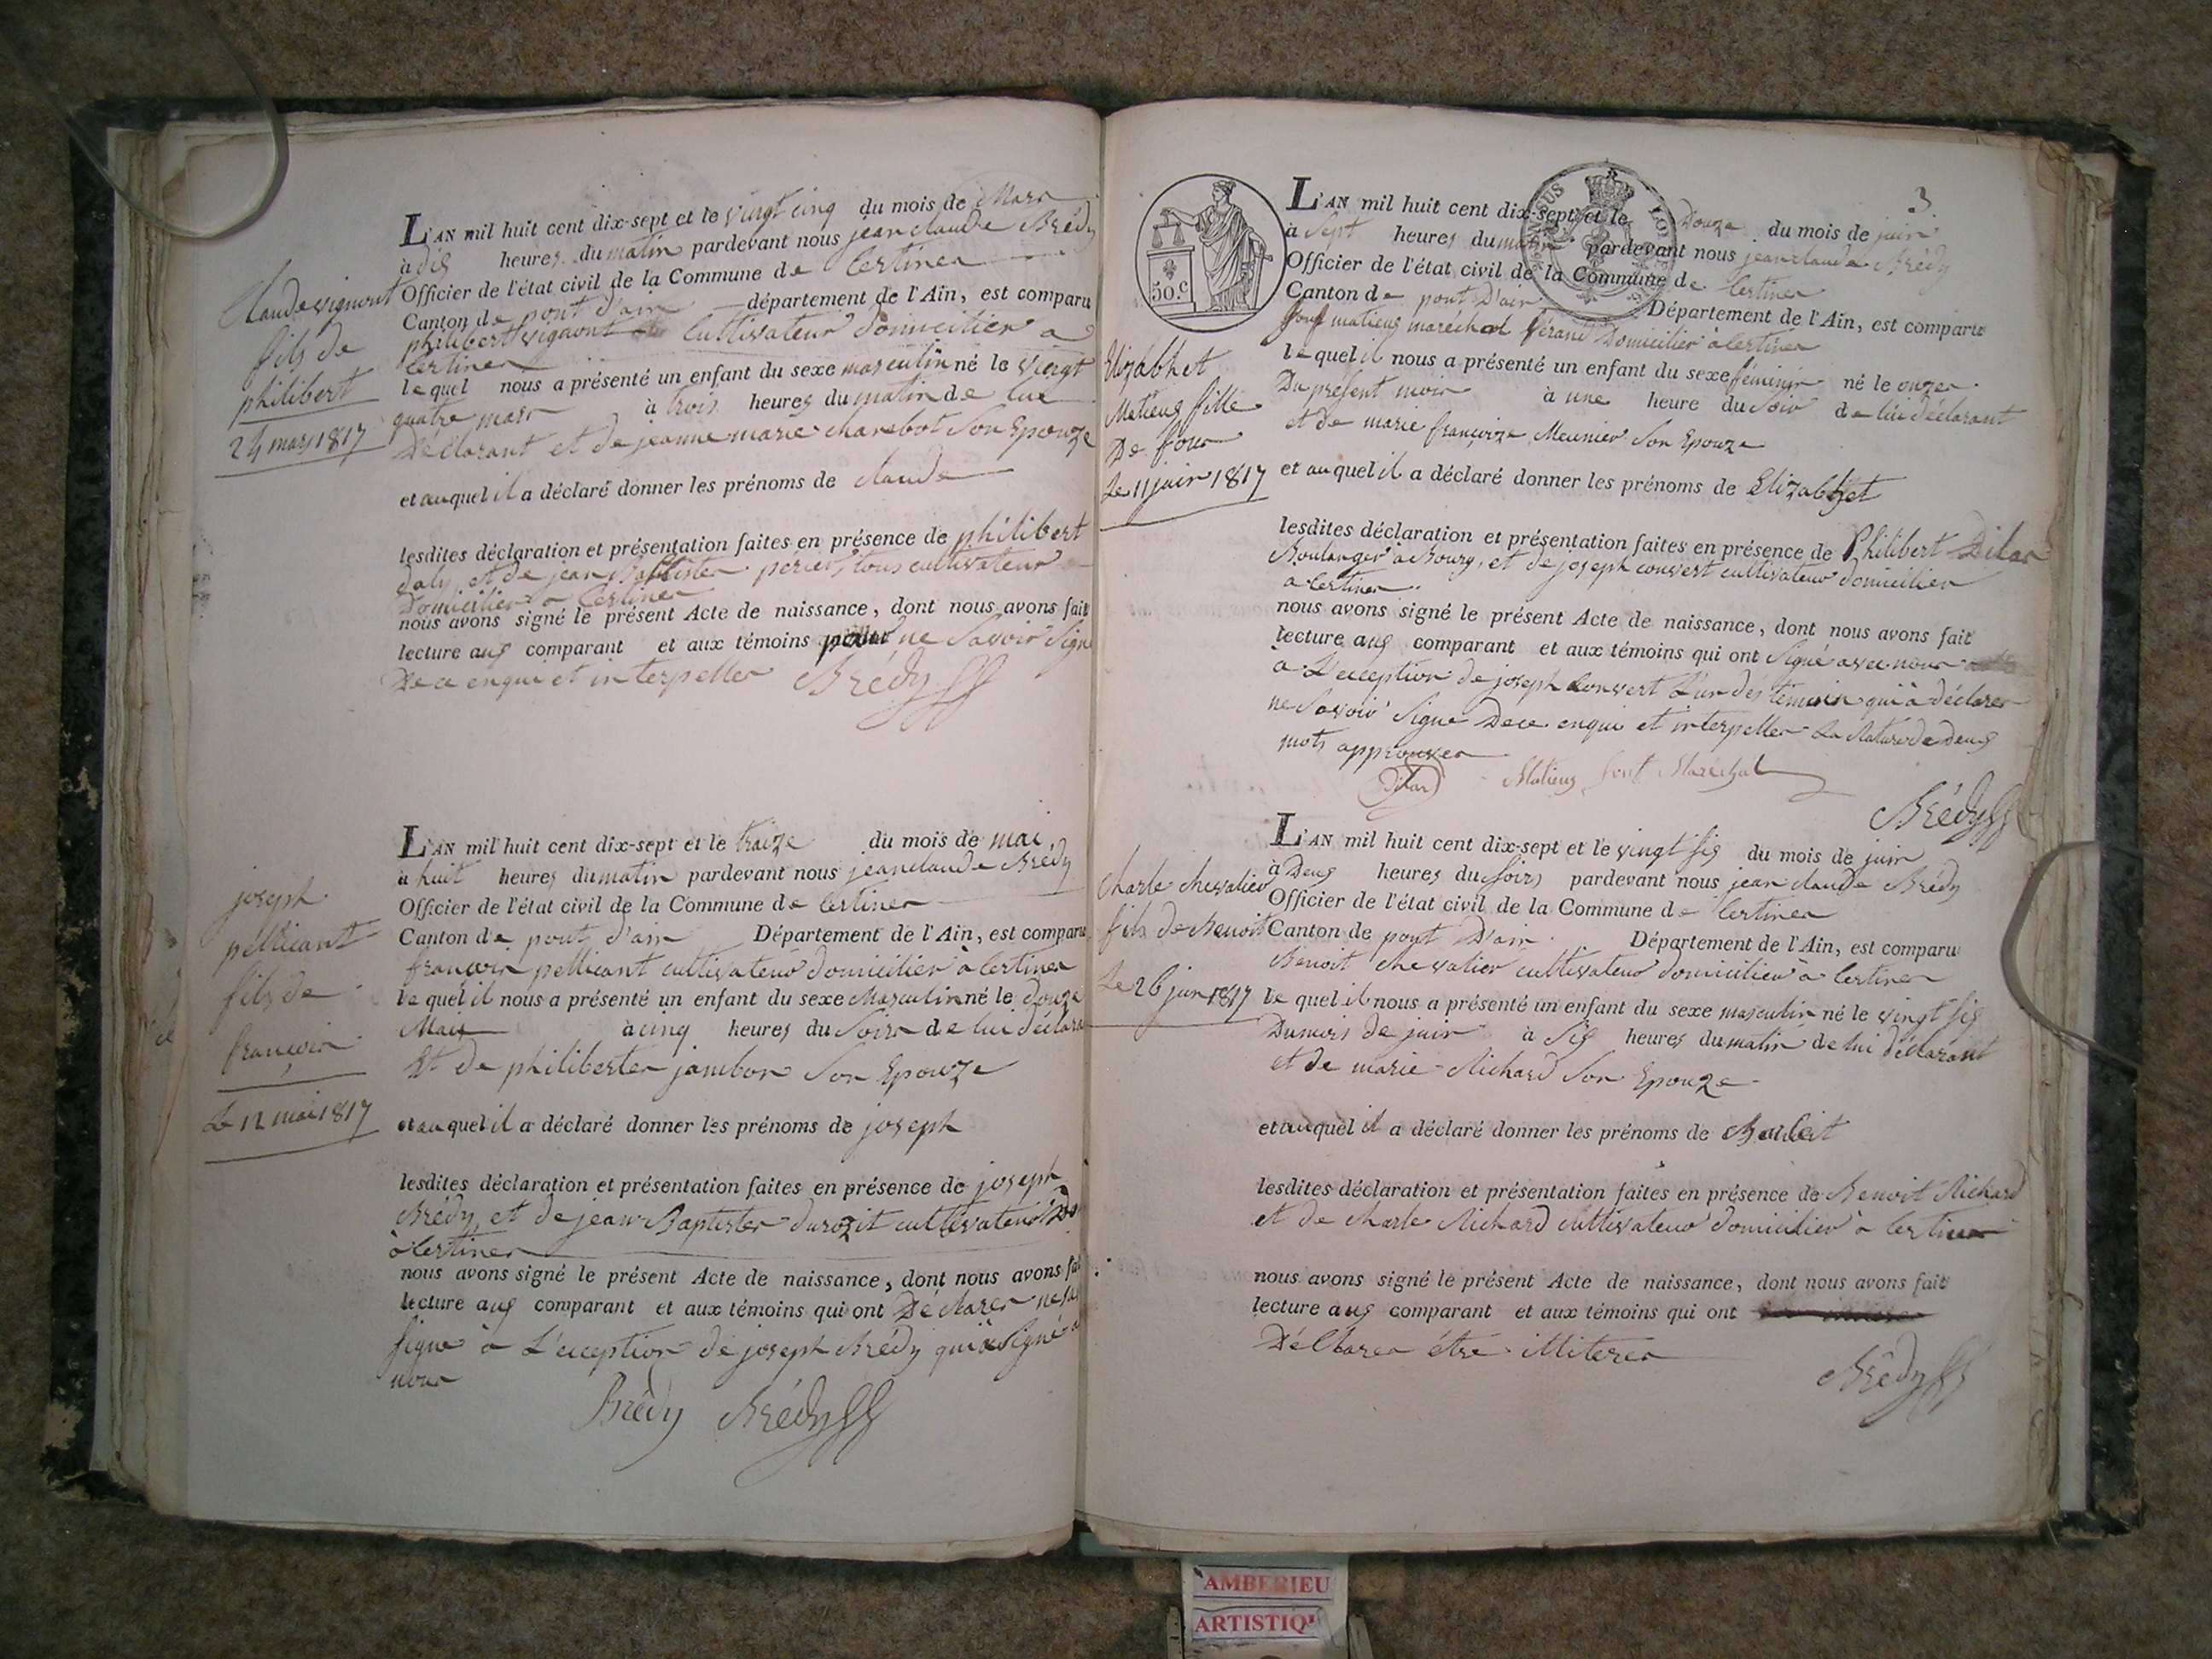 L'AN mil huit cent dix-sept et le vingt cinq du mois de Mars
à dis heures du matin pardevant nous jean claude Brédy
Officier de l'état civil de la Commune de Certines
Canton de pont d'ain département de l'Ain, est comparu
philibert vignont Cultivateur domicilier a
Certines
lequel nous a présenté un enfant du sexe masculin né le vingt
quatre mars à trois heures du matin de lui
Déclarant et de jeanne marie charebot Son Epouze
et auquel il a déclaré donner les prénoms de claude
lesdites déclaration et présentation faites en présence de philibert
daly, et de jean Baptister perier, tous cultivateur
Domicilier a Certines
nous avons signé le présent Acte de naissance, dont nous avons fait
lecture aux comparant et aux témoins pour ne Savoir Signe
De ce enquit et interpeller Brédy
Claude vignont
fils de
philibert
24 mars 1817
L'AN mil huit cent dix-sept et le traize du mois de mai
à huit heures du matin pardevant nous jean claude Brédy
Officier de l'état civil de la Commune de Certines
Canton de pont d'ain Département de l'Ain, est comparu
françois pellicant cultivateur domicilier à Certines
le quel il nous a présenté un enfant du sexe Masculin né le douze
Mai à cinq heures du Soire de lui déclara
Et de philiberter jambon Son Epouze
et au quel il a déclaré donner les prénoms de joseph
lesdites déclaration et présentation faites en présence de joseph
Brédy, et de jean Baptister durozit cultivateur Do
à Certines
nous avons signé le présent Acte de naissance, dont nous avons fai
lecture aux comparant et aux témoins qui ont Déclarer ne sa
Signe à L'éception de joseph Brédy qui a Signé a
nous
Brédy Brédy
joseph
pellicant
fils de
françois
Le 12 mai 1817
3
L'AN mil huit cent dix-sept et le Douze du mois de juin
à Sept heures du matin pardevant nous jean claude Brédy
Officier de l'état civil de la Commune de Certines
Canton de pont D'ain Département de l'Ain, est comparu
matieux maréchal férand Domicilier à Certines
le quel il nous a présenté un enfant du sexe féminin né le onze
Du présent mois à une heure du Soir de lui déclarant
et de marie françoize Meunier Son Epouze
et au quel il a déclaré donner les prénoms de Elizabhet
lesdites déclaration et présentation faites en présence de Philibert Dilar
Boulanger à Bourg, et de joseph convert cultivateur domicilier
a Certines
nous avons signé le présent Acte de naissance, dont nous avons fait
lecture aux comparant et aux témoins qui ont Signé avec nous
a L'exception de joseph Convert L'un des témoin qui à déclarer
ne Savoir Signe De ce enqui et interpeller La Rature de Deux
mots approuver
Dilar Matieux font Maréchal
Brédy
50.c
Elizabhet
Matieux fille
De four
Le 11 juin 1817
L'AN mil huit cent dix-sept et le vingt six du mois de juin
à Deux heures du Soir pardevant nous jean claude Brédy
Officier de l'état civil de la Commune de Certines
Canton de pont D'ain Département de l'Ain, est comparu
Benoit chevalier cultivateur domicilier à Certines
le quel il nous a présenté un enfant du sexe masculin né le vingt six
Du mois de juin à Six heures du matin de lui déclarant
et de marie Richard Son Epouze
et auquel il a déclaré donner les prénoms de
lesdites déclaration et présentation faites en présence de Benoit Richard
et de charle Richard Cultivateur domicilier à Certines
nous avons signé le présent Acte de naissance, dont nous avons fait
lecture aux comparant et aux témoins qui ont
Déclarer étre illiterer
Brédy
charle chevalier
fils de Benoit
Le 26 juin 1817
AMBERIEU
ARTISTIQ